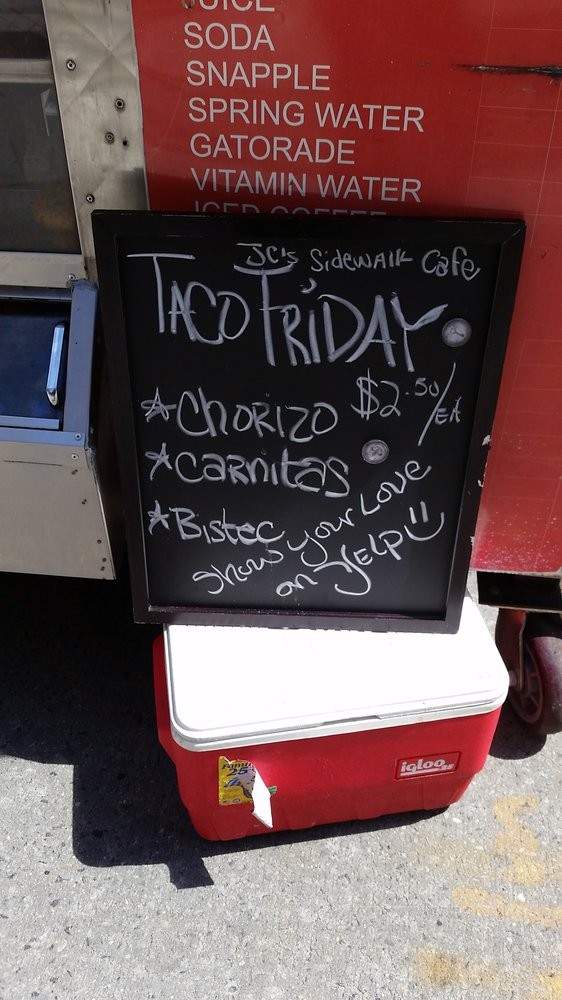 JUICE
SODA
SNAPPLE
SPRING WATER
GATORADE
VITAMIN WATER
ICED COFFEE
JC's Sidewalk Cafe
TACO FRIDAY
*CHORIZO $2.50/EA
*CARNITAS
*Bistec
Show your Love
on YELP
igloo
25